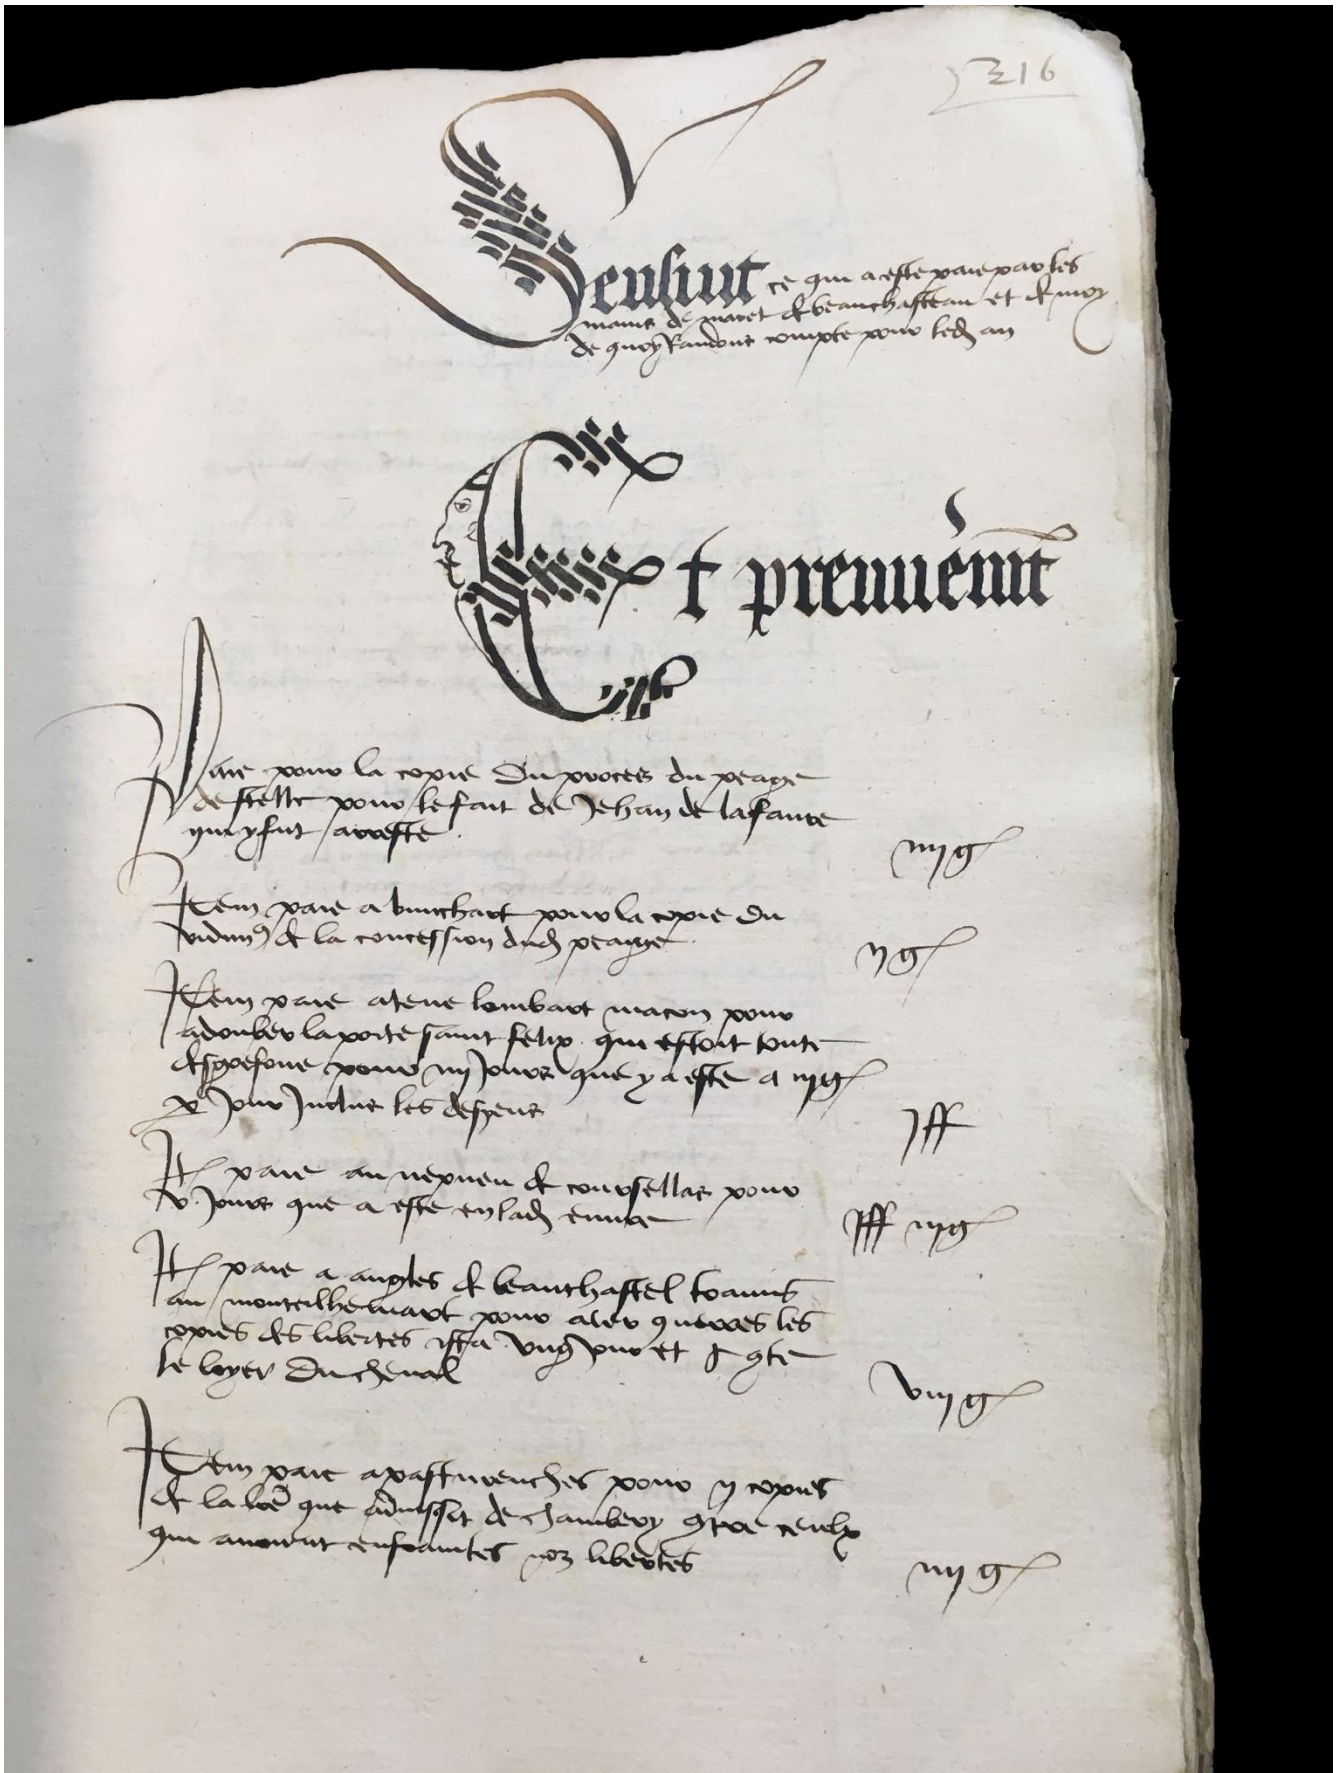 216
Sensuit ce qui a este paie par les
mains de macet de beauchasteau et de moy
de quoy Randons compte pour led an
Et premieremt
Paie pour la copie du proces du peage
destelle pour le fait de Jehan de lafaure
qui y fut arreste
iiij g
Item paie a bouchart pour la copie du
vidimus de la concession dud peaige
ij g
Item paie a lombart macon pour
adouber la porte saint felix qui estoit toute
pour iiij jours que y a este a iij g
p jour inclus les despens
j ff
It paie au nepveu de coursellas pour
v jours que a este en lad euvre
j ff iij g
It paie a angles de beauchastel
au monteilhemart pour aler querres les
copies des libertes ista ung jour et
le loyer du cheval
viij g
Item paie a pasturenches pour ij copies
de la lre que de chambery gtre ceulx
qui avoient enfraintes noz libertes
iiij g